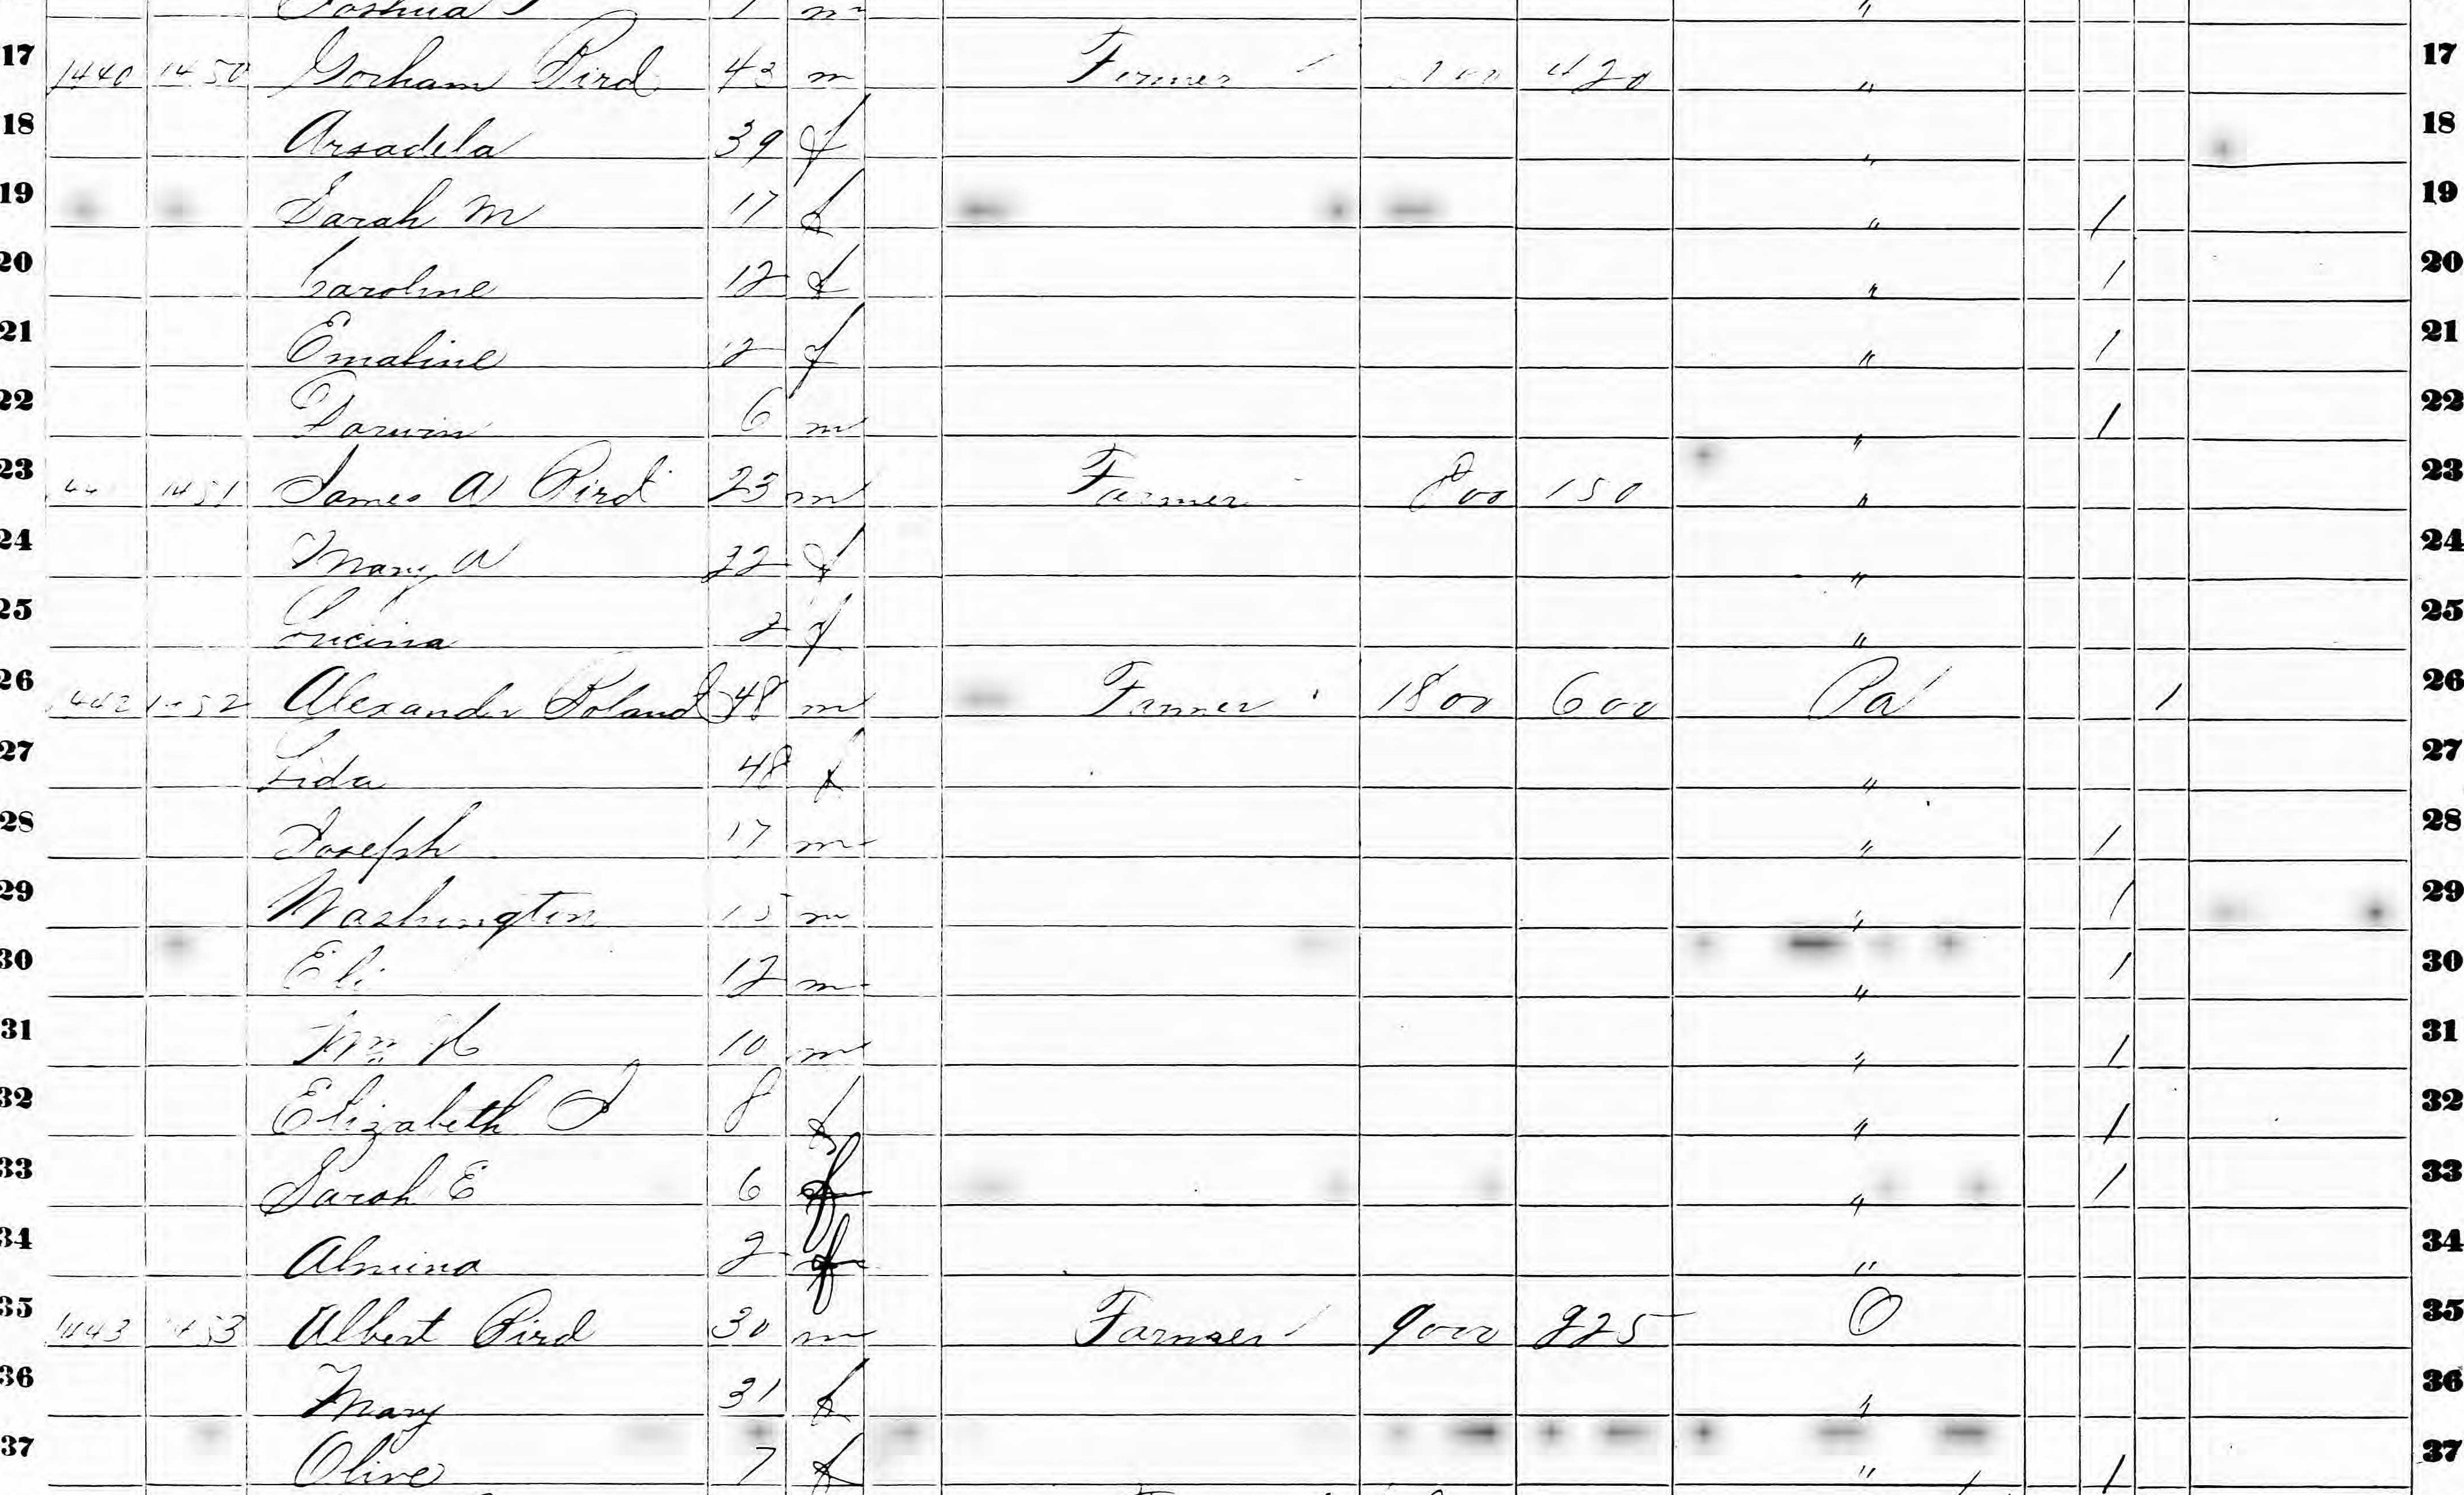 Joshua 1 m "
17 1440 1450 Gorham Bird 43 m Farmer 420 " 17
18 Arsadela 39 f " 18
19 Sarah M 17 f " / 19
20 Caroline 12 f " / 20
21 Emaline 12 f " / 21
22 Darwin 6 m " / 22
23 1451 James A Bird 23 m Farmer 800 150 " 23
24 Mary A 22 f " 24
25 Lucina 2 f " 25
26 1442 1452 Alexander Poland 48 m Farmer 1800 600 Pa / 26
27 Lida 48 f " 27
28 Joseph 17 m " / 28
29 Washington 15 m " / 29
30 Eli 12 m " / 30
31 Wm H 10 m " / 31
32 Elizabeth J 8 f " / 32
33 Sarah E 6 f " / 33
34 Almina 2 f " 34
35 1443 1453 Albert Bird 30 m Farmer 9000 225 O 35
36 Mary 31 f " 36
37 Olive 7 f " / 37